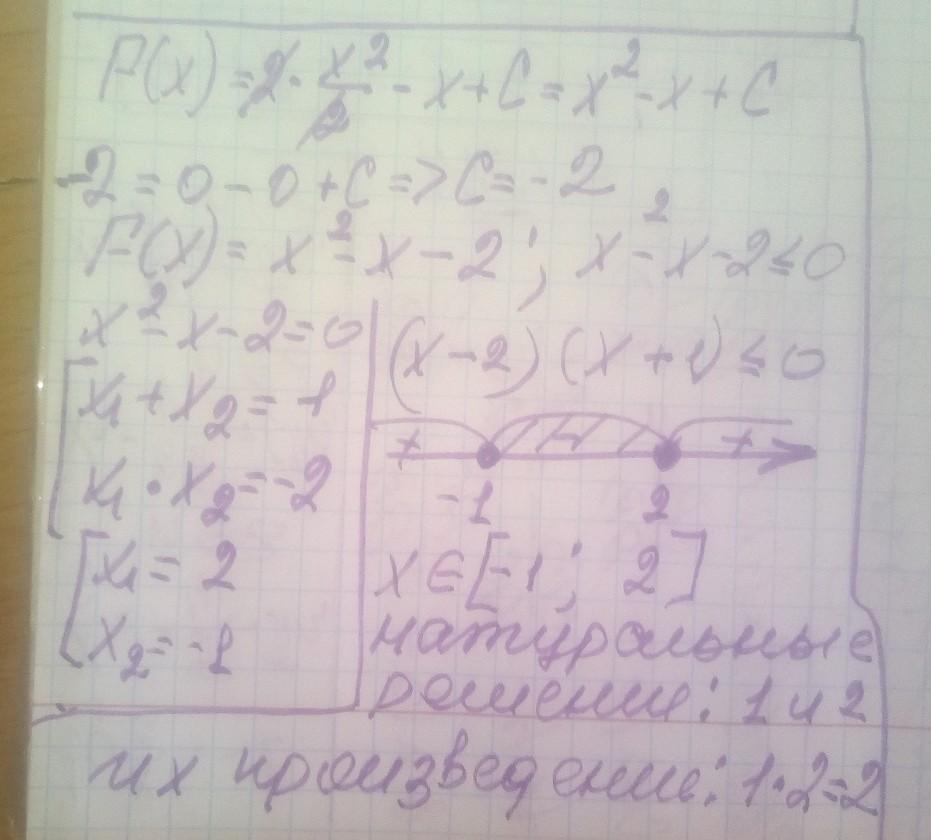 F(x) = 2 · x²/2 - x + C = x² - x + C
-2 = 0 - 0 + C => C = -2
F(x) = x² - x - 2 ; x² - x - 2 ≤ 0
x² - x - 2 = 0
x₁ + x₂ = 1
x₁ · x₂ = -2
x₁ = 2
x₂ = -1
(x - 2) (x + 1) ≤ 0
+ - +
-1 2
x ∈ [-1 ; 2]
натуральные
решение: 1 и 2
их произведение: 1·2=2